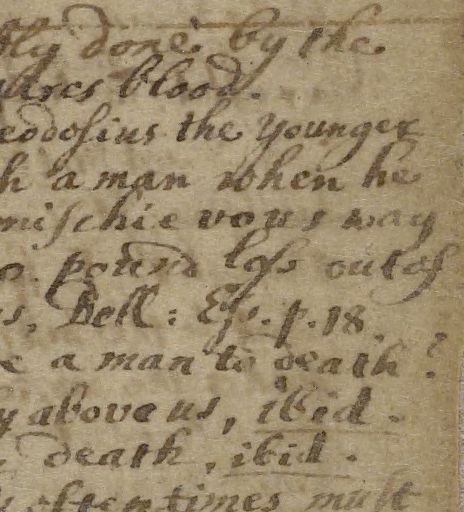 done by the
blood.
eodosius the Younger
h a man when he
mischievous way
pound loss out of
s, Bell: Ess. p. 18.
e a man to death?
y above us, ibid.
death, ibid.
oftentimes must